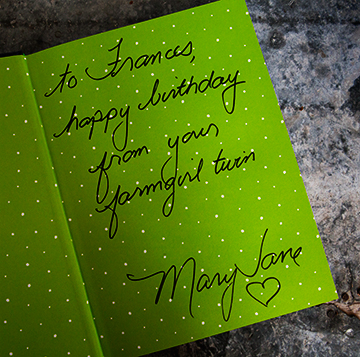 to Frances,
happy birthday
from your
farmgirl twin
MaryJane